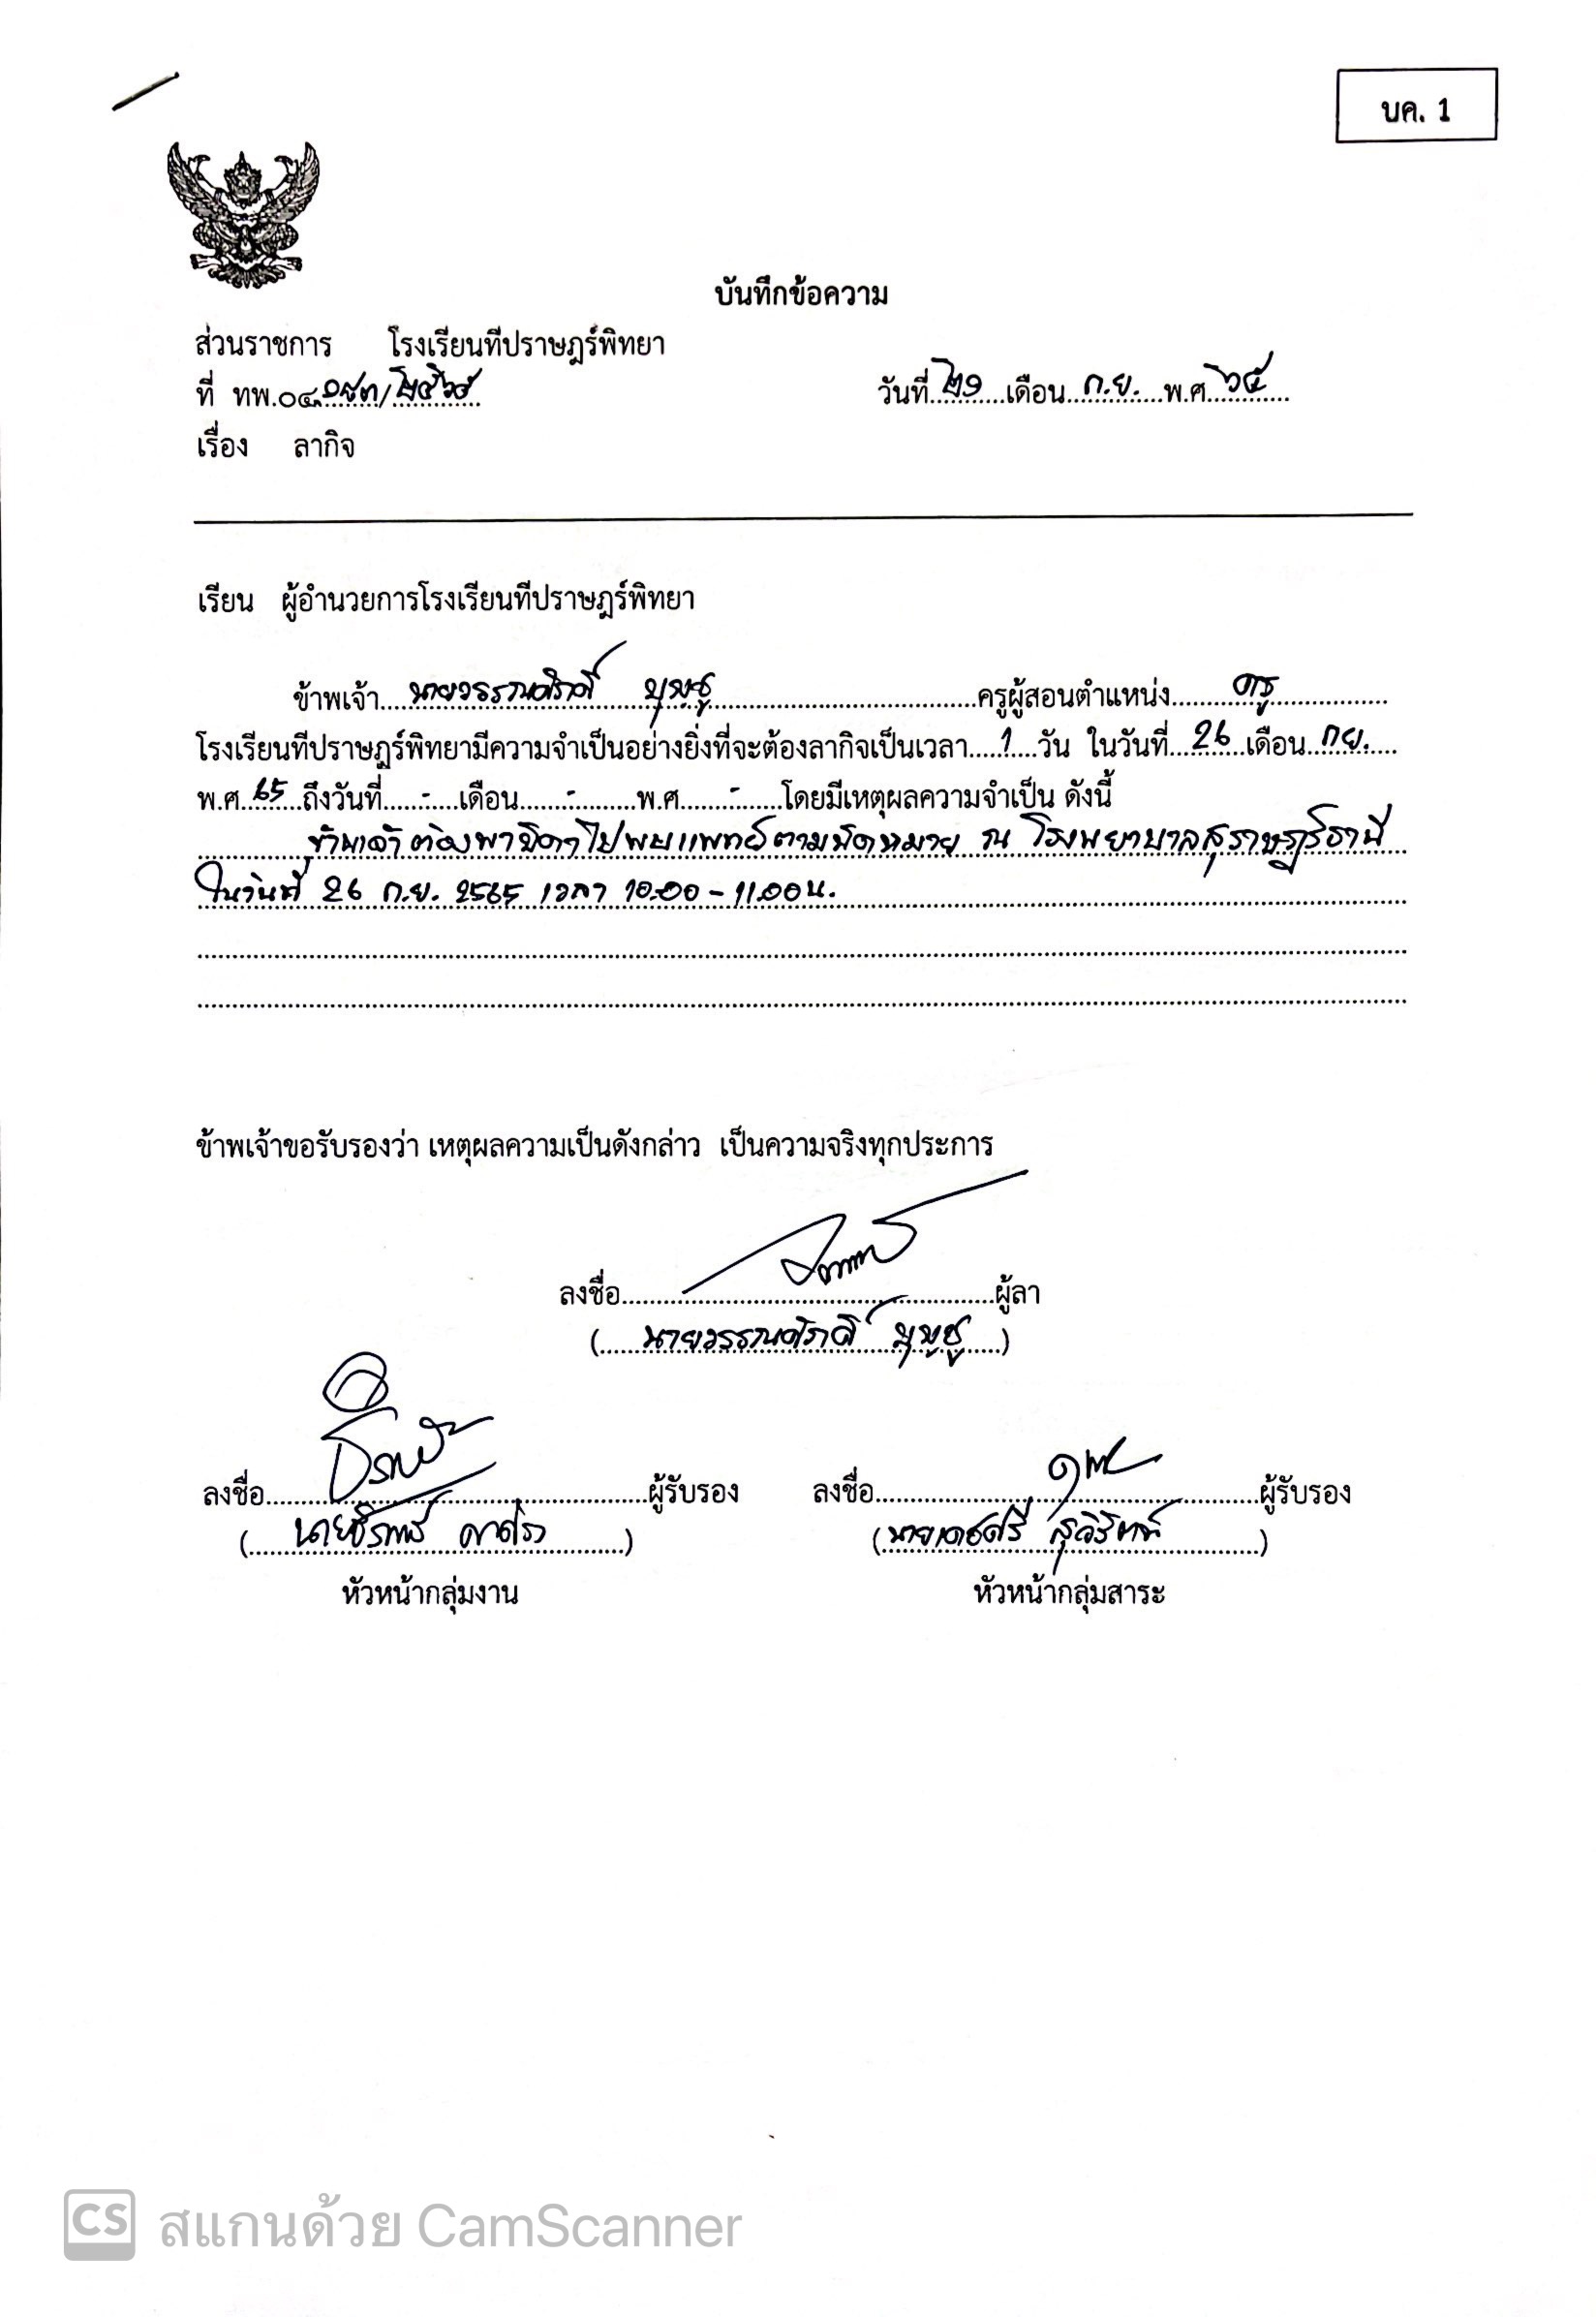 บค. 1
บันทึกข้อความ
ส่วนราชการ โรงเรียนทีปราษฎร์พิทยา
ที่ ทพ.๐๔.๐๘๓/๒๕๖๕ วันที่ ๒๑ เดือน ก.ย. พ.ศ ๖๕
เรื่อง ลากิจ
เรียน ผู้อำนวยการโรงเรียนทีปราษฎร์พิทยา
ข้าพเจ้า นายวรรณศักดิ์ บุษชู ครูผู้สอนตำแหน่ง ครู
โรงเรียนทีปราษฎร์พิทยามีความจำเป็นอย่างยิ่งที่จะต้องลากิจเป็นเวลา 1 วัน ในวันที่ 26 เดือน ก.ย.
พ.ศ. 65 ถึงวันที่ - เดือน - พ.ศ. - โดยมีเหตุผลความจำเป็น ดังนี้
ข้าพเจ้า ต้องพาบิดาไปพบแพทย์ตามนัดหมาย ณ โรงพยาบาลสุราษฎร์ธานี
ในวันที่ 26 ก.ย. 2565 เวลา 10.00 - 11.00 น.
ข้าพเจ้าขอรับรองว่า เหตุผลความเป็นดังกล่าว เป็นความจริงทุกประการ
ลงชื่อ ผู้ลา
( นายวรรณศักดิ์ บุษชู )
ลงชื่อ ผู้รับรอง ลงชื่อ ผู้รับรอง
หัวหน้ากลุ่มงาน หัวหน้ากลุ่มสาระ
CS สแกนด้วย CamScanner